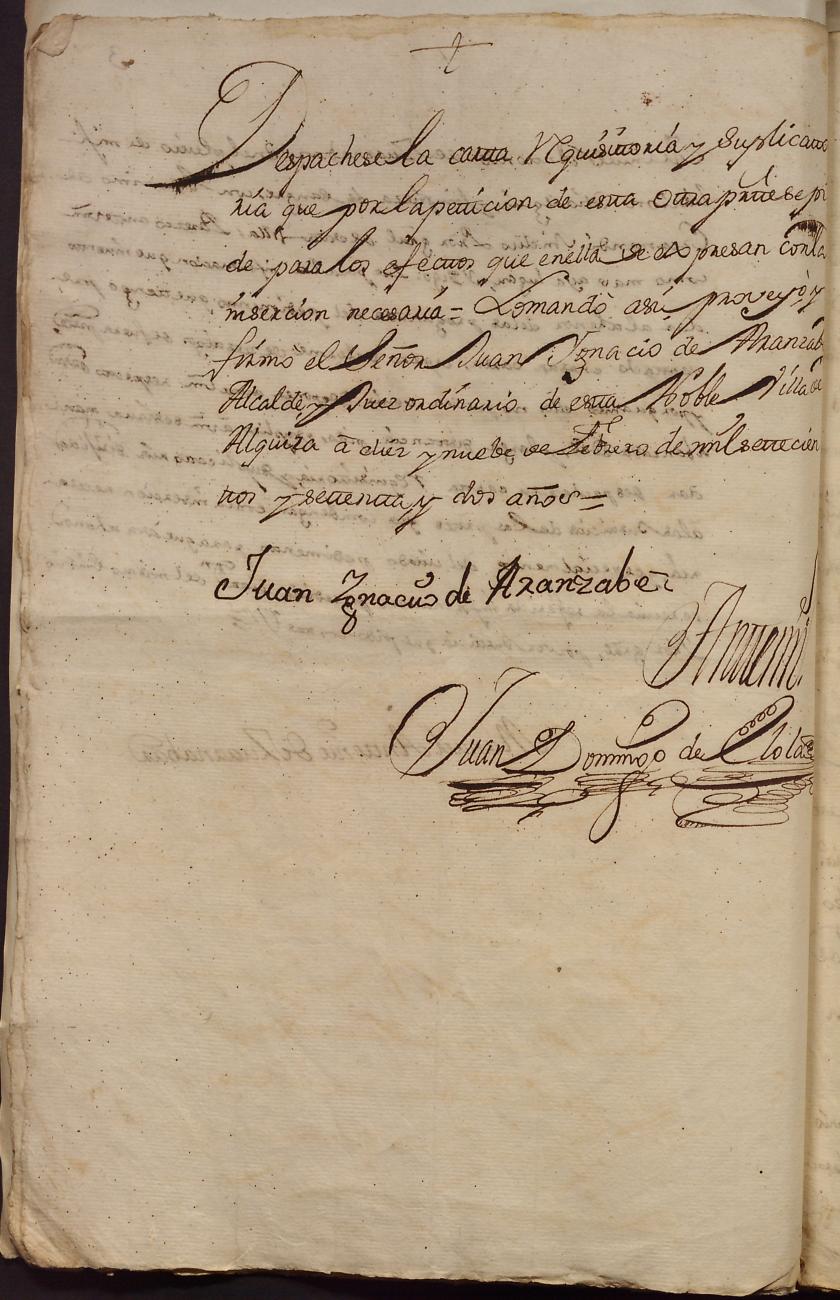 Despachese la carta Requisitoria y Suplicato
ria que por la peticion de esta otra parte se pi
de para los efectos que en ella se expresan con la
insercion necesaria = Lo mandò asi proveyò y
firmò el Señor Juan Ygnacio de Aranzab
Alcalde y Juez ordinario de esta Noble Villa de
Alquiza â diez y nuebe de Febrero de mil setecien
tos y setenta y dos años =
Juan Ygnacio de Aranzabe
Antemi
Juan Domingo de Elola